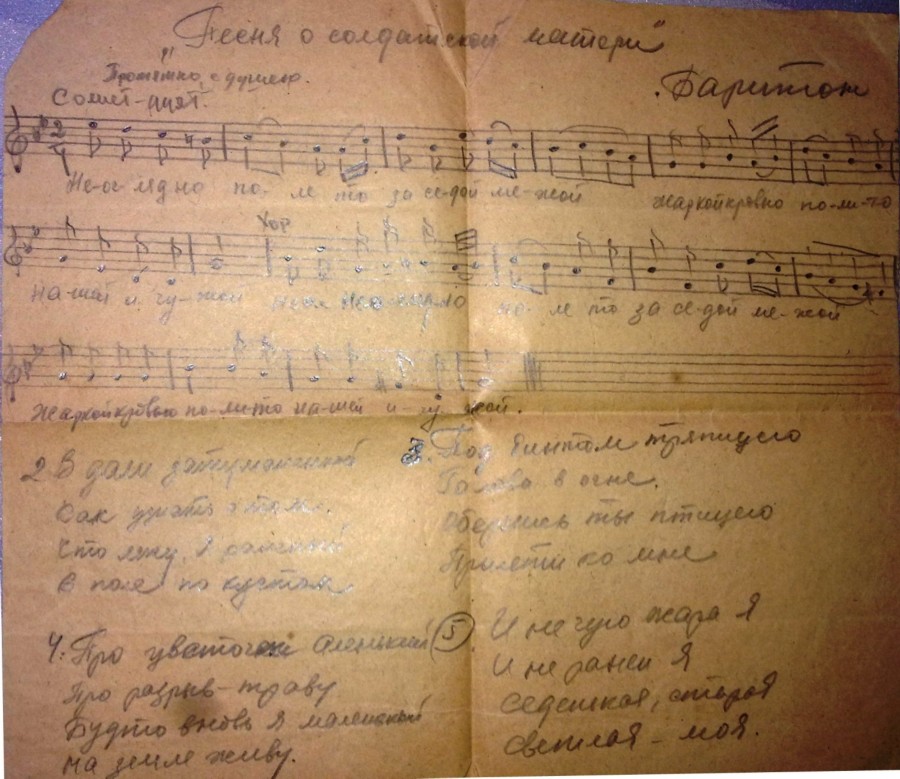 "Песня о солдатской матери"
Протяжно, с душою.
Баритон
Солист-дуэт.
Не-ог-ляд-но по-ле то за се-дой ме-жой жаркой кровью по-ли-то
на-шей и чу-жой
Хор
Нео-глядно по-ле то за се-дой ме-жой
Жаркой кровью по-ли-то на-шей и чу-жой.
2 В дали затуманенной
Как узнать о том.
Что лежу, я раненный
В поле по кустом
3. Под бинтом тряпицею
Голова в огне.
Обернись ты птицею
Прилети ко мне
4. Про цветочек аленький
Про разрыв-траву
Будто вновь я маленький
На земле живу.
5. И не чую жара я
И не ранен я
Седенькая, старая
Светлая - моя.